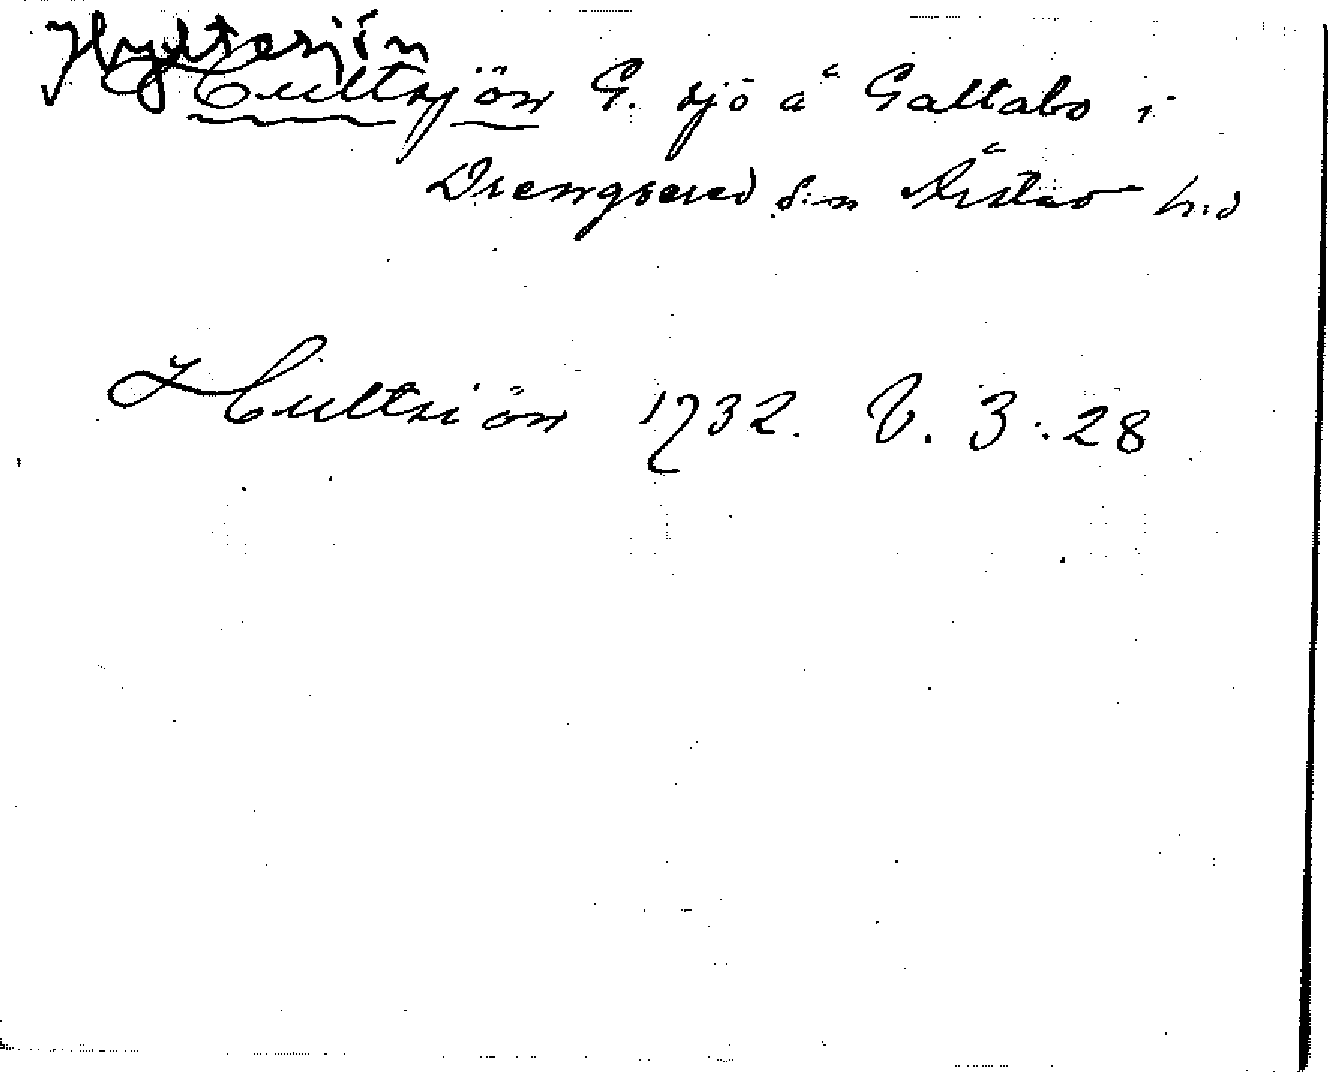 Hyltesjön
Hultsjön G. sjö å Gällabo i
Drengsered s:n Årstad h:d
Hultsiön 1732. V. 3:28